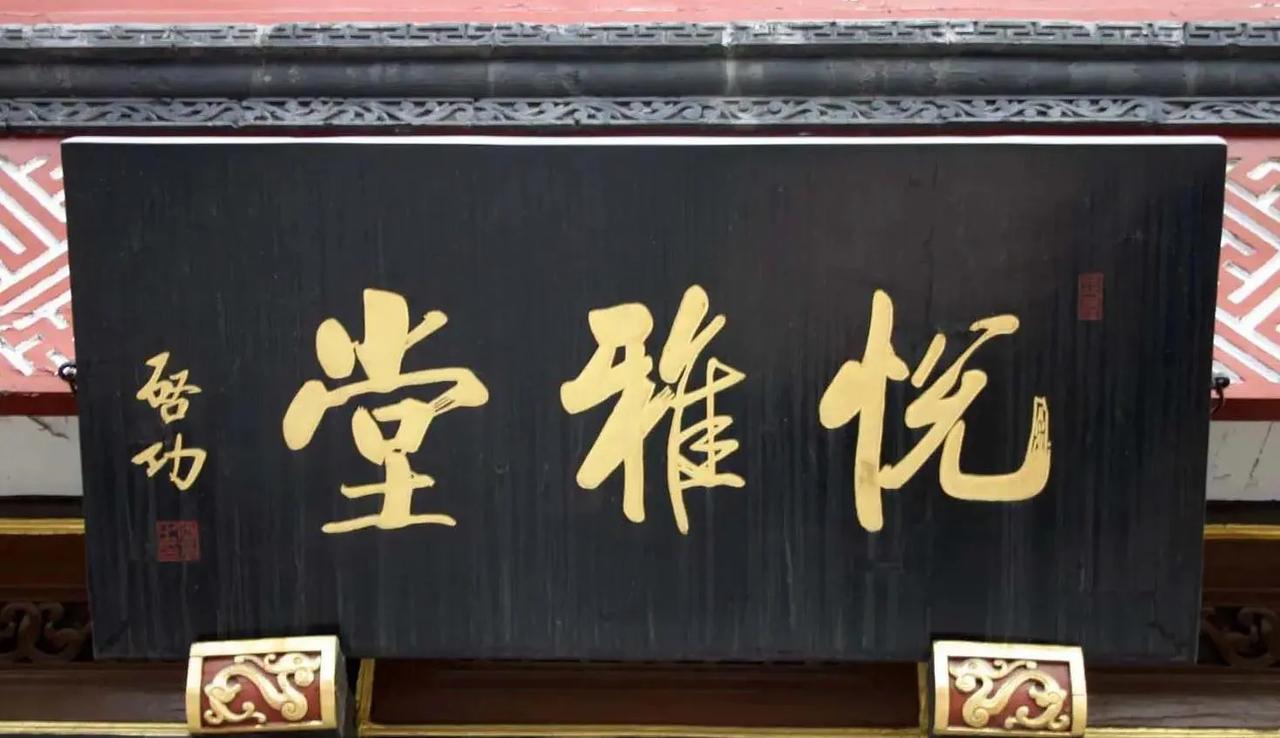 悦雅堂
啓功